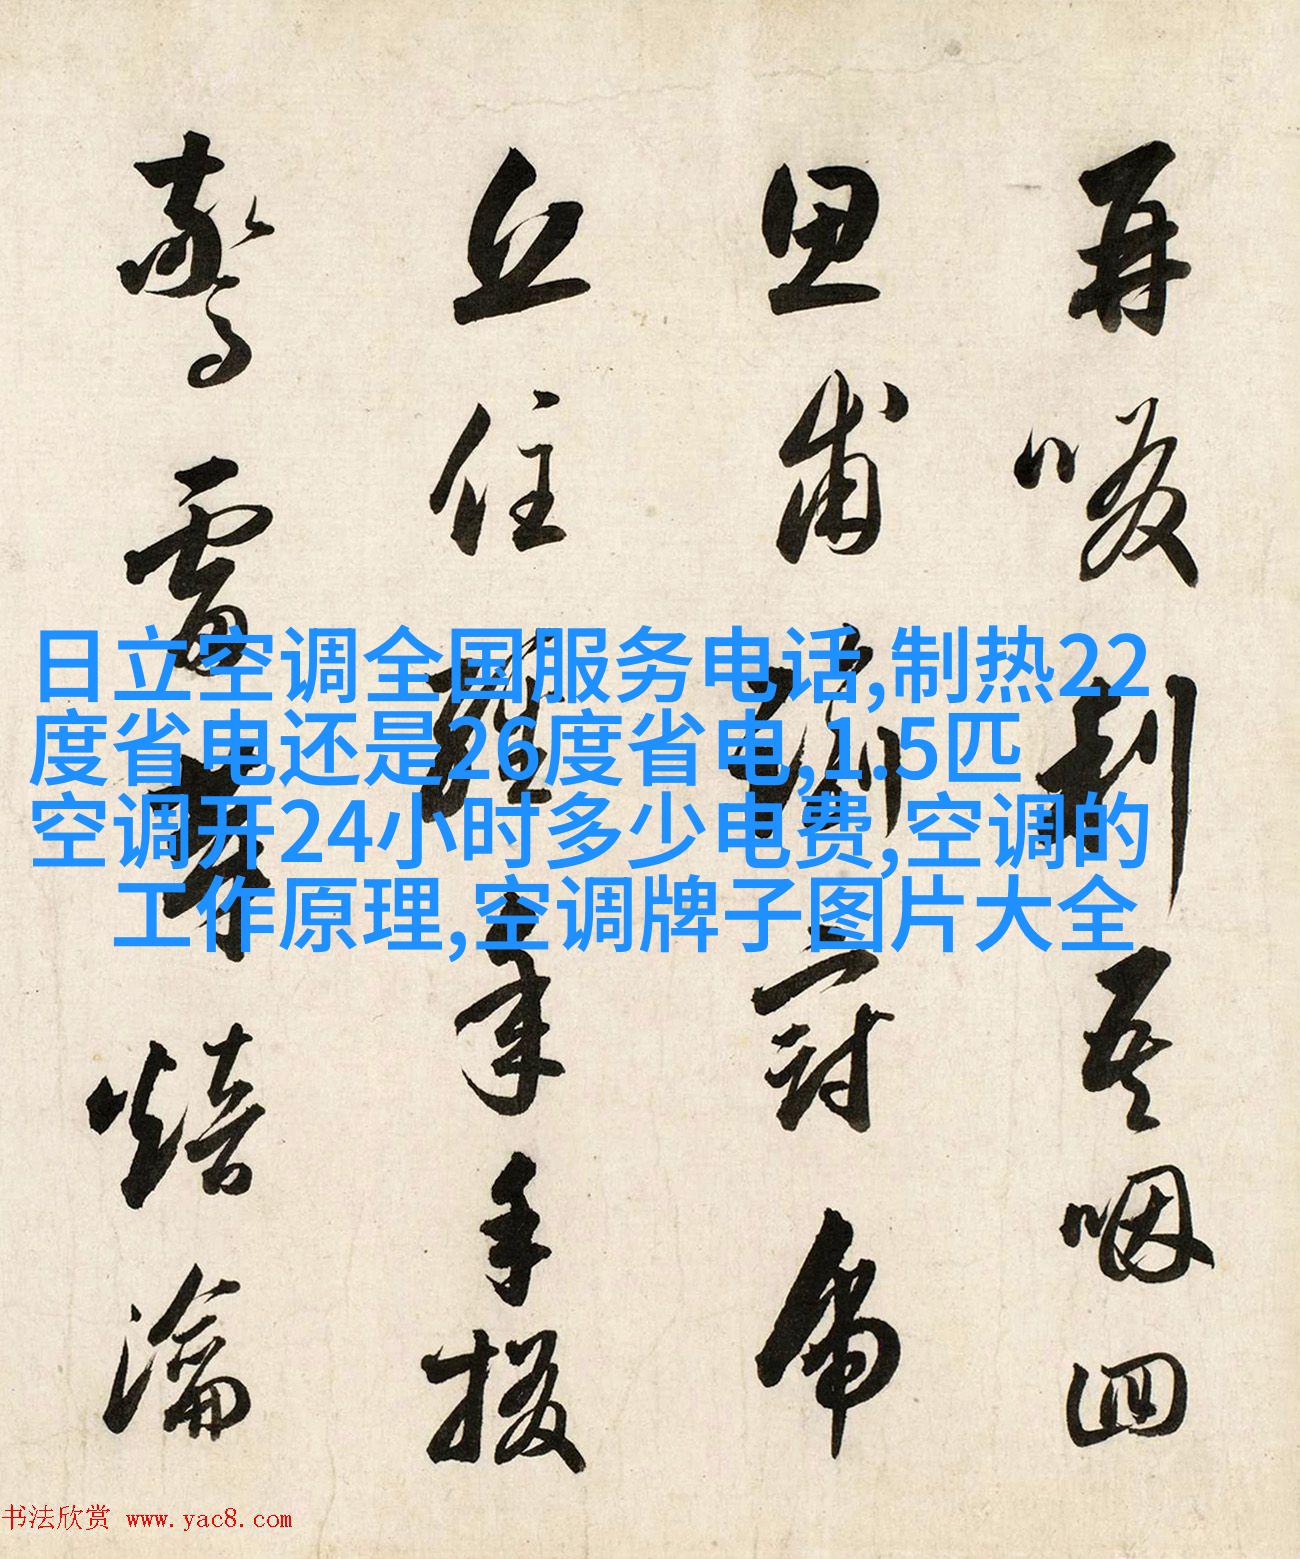 日立空调全国服务电话,制热22
度省电还是26度省电,1.5匹
空调开24小时多少电费,空调的
工作原理,空调牌子图片大全
再啜刮吾咽四
思甫瀹冠
丘住醒来手掇
惊雷荚焙瀹
书法欣赏 www.yac8.com